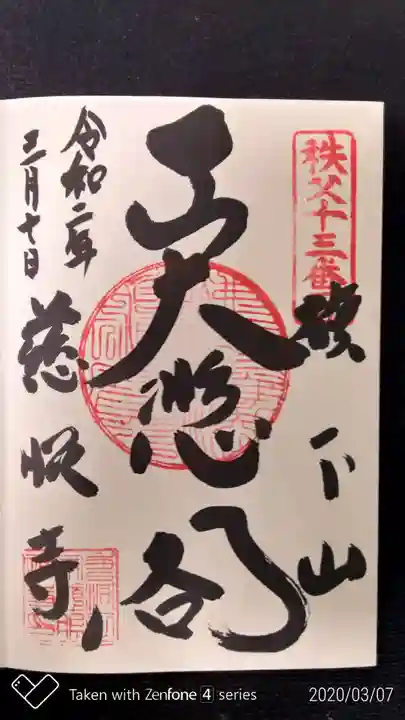 秩父十三番
旗下山
正大悲閣
令和二年
三月十日
慈眼寺
Taken with Zenfone 4 series
2020/03/07